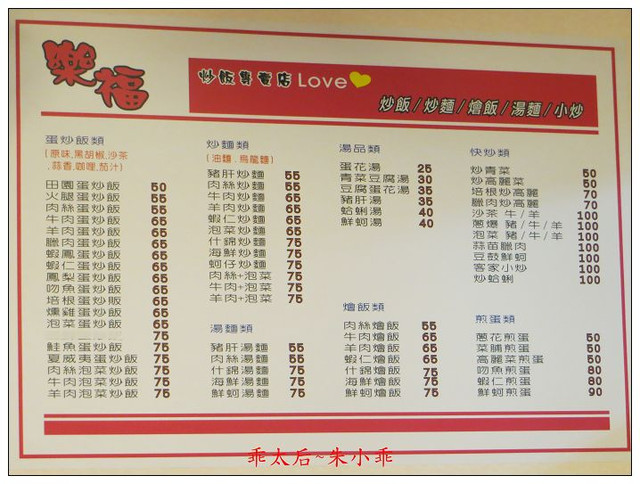 樂福
炒飯專賣店 Love
炒飯/炒麵/燴飯/湯麵/小炒
蛋炒飯類
(原味,黑胡椒,沙茶
,蒜香,咖哩,茄汁)
田園蛋炒飯 50
火腿蛋炒飯 55
肉絲蛋炒飯 55
牛肉蛋炒飯 65
羊肉蛋炒飯 65
臘肉蛋炒飯 65
蝦鳳蛋炒飯 65
蝦仁蛋炒飯 65
鳳梨蛋炒飯 65
吻魚蛋炒飯 65
培根蛋炒飯 65
燻雞蛋炒飯 65
泡菜蛋炒飯 65
75
鮭魚蛋炒飯 75
夏威夷蛋炒飯 75
肉絲泡菜炒飯 75
牛肉泡菜炒飯 75
羊肉泡菜炒飯 75
炒麵類
(油麵,烏龍麵)
豬肝炒麵 55
肉絲炒麵 55
牛肉炒麵 65
羊肉炒麵 65
蝦仁炒麵 65
泡菜炒麵 65
什錦炒麵 75
海鮮炒麵 75
蚵仔炒麵 75
肉絲+泡菜 75
牛肉+泡菜 75
羊肉+泡菜 75
湯麵類
豬肝湯麵 55
肉絲湯麵 55
什錦湯麵 75
海鮮湯麵 75
鮮蚵湯麵 75
湯品類
蛋花湯 25
青菜豆腐湯 30
豆腐蛋花湯 35
豬肝湯 35
蛤蜊湯 40
鮮蚵湯 40
燴飯類
肉絲燴飯 55
牛肉燴飯 65
羊肉燴飯 65
蝦仁燴飯 65
什錦燴飯 75
海鮮燴飯 75
鮮蚵燴飯 75
快炒類
炒青菜 50
炒高麗菜 50
培根炒高麗 70
臘肉炒高麗 70
沙茶 牛/羊 100
蔥爆 豬/牛/羊 100
泡菜 豬/牛/羊 100
蒜苗臘肉 100
豆鼓鮮蚵 100
客家小炒 100
炒蛤蜊 100
煎蛋類
蔥花煎蛋 50
菜脯煎蛋 50
高麗菜煎蛋 50
吻魚煎蛋 80
蝦仁煎蛋 80
鮮蚵煎蛋 90
乖太后~朱小乖